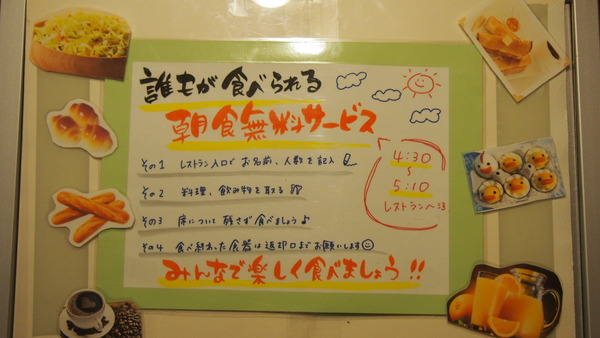 誰もが食べられる
朝食無料サービス
その1 レストラン入口でお名前、人数を記入
その2 料理、飲み物を取る
その3 席について残さず食べましょう♪
その4 食べ終わった食器は返却口までお願いします
みんなで楽しく食べましょう!!
4:30
~
5:10
レストランへ